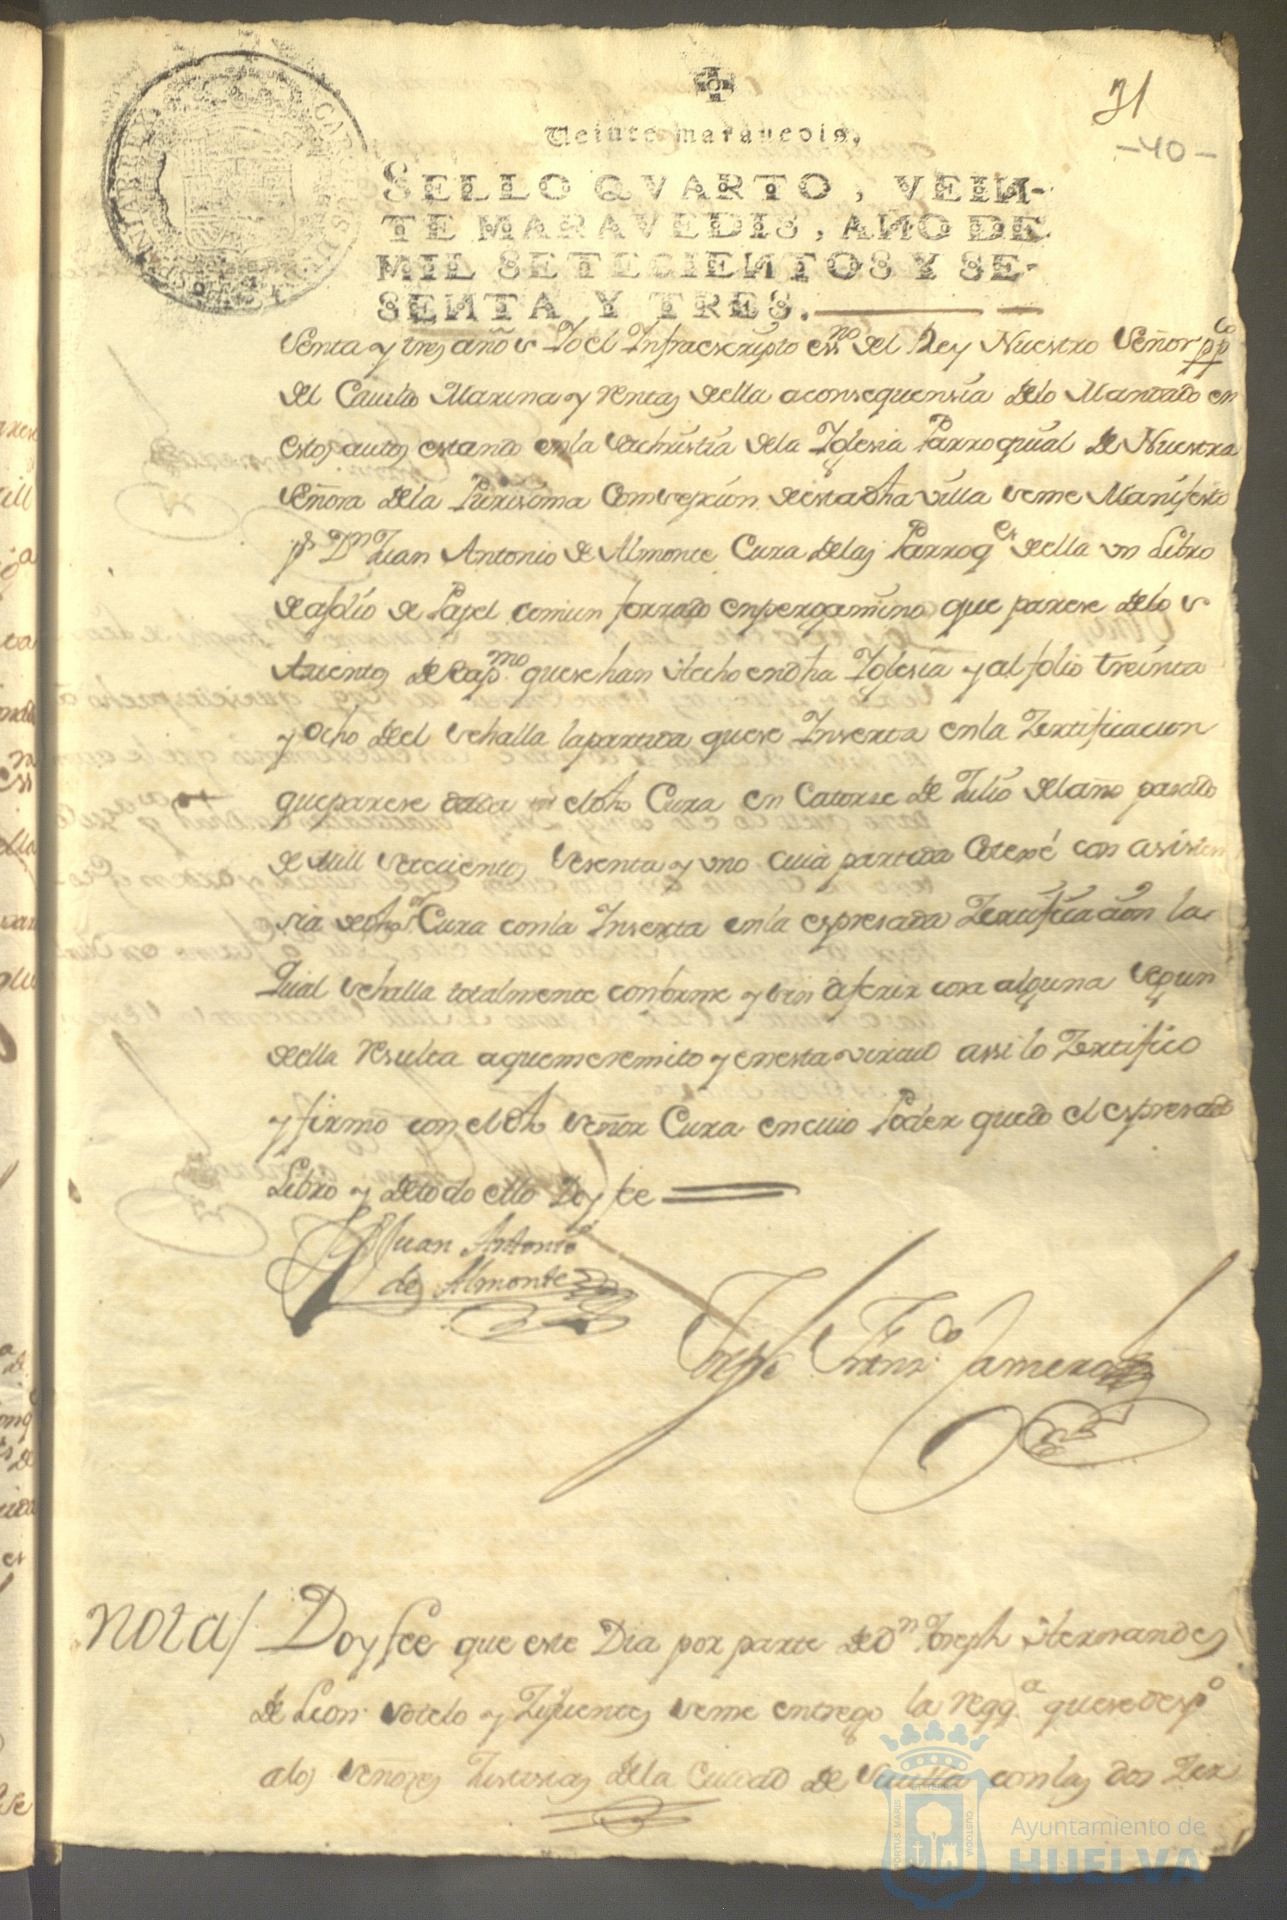 31
-40-
Veinte maravedis,
SELLO QVARTO, VEIN-
TE MARAVEDIS, AÑO DE
MIL SETECIENTOS Y SE-
SENTA Y TRES.
senta y tres años Yo el Infraescripto essno del Rey Nuestro Señor ppco
del Cavildo Marina y rentas della a consequensia delo Mandado en
estos autos estando en la sachristia dela Yglesia Parroquial de Nuestra
Señora dela Purissima Comsepsion de esta dha villa seme Manifesto
pr Dn Juan Antonio de Almonte Cura delas Parroqes della un Libro
de afolio de Papel comun forrado en pergamino que parese delos
Asientos de Bapmo que se han Hecho en dha Yglesia y al folio treinta
y ocho del se halla la partida que se Inserta en la Zertificacion
que parese dada el dho Cura en Catorse de Julio del año pasado
de Mill setecientos sesenta y uno cuia partida Cotexé con asisten
sia de dho sr Cura con la Inserta en la espresada Zertificacion la
Qual se halla totalmente conforme y sin diferir cosa alguna segun
della resulta a que me remito y en esta virtud assi lo Zertifico
y firmo con el dho Señor Cura en cuio Poder quedo el espresado
Libro y de todo ello Doy fee
Juan Antonio
de Almonte
Joseph Franco Camero
Nota/ Doy fee que este Dia por parte de Dn Joseph Hernandes
de Leon Sotelo y Zifuentes seme entrego la reqqa que se despo
alos Señores Justisias dela Ciudad de Sevilla con las dos Zer
PORTUS MARIS
CUSTODIA
Ayuntamiento de
HUELVA